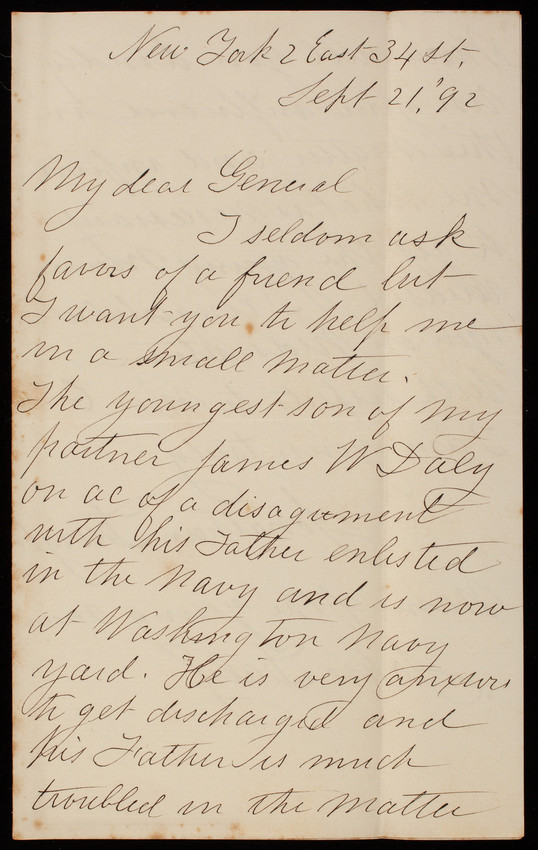 New York 2 East 34 St,
Sept 21, '92
My dear General
I seldom ask
favors of a friend but
I want you to help me
in a small matter.
The youngest son of my
partner James W Daly
on ac of a disagument
with his Father enlisted
in the Navy and is now
at Washington Navy
yard. He is very anxious
to get discharged and
his Father is much
troubled in the matter